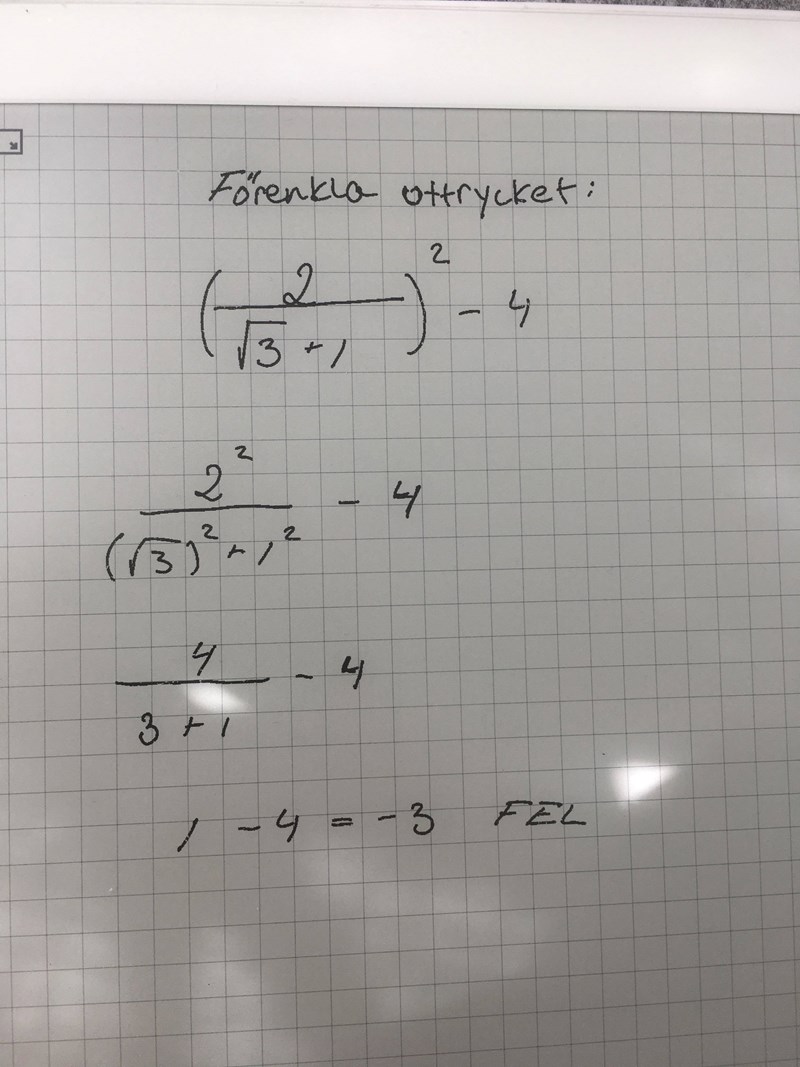 Förenkla ottrycket:
(2/(√3 + 1))² - 4
2²/((√3)² + 1²) - 4
4/(3 + 1) - 4
1 - 4 = -3 FEL